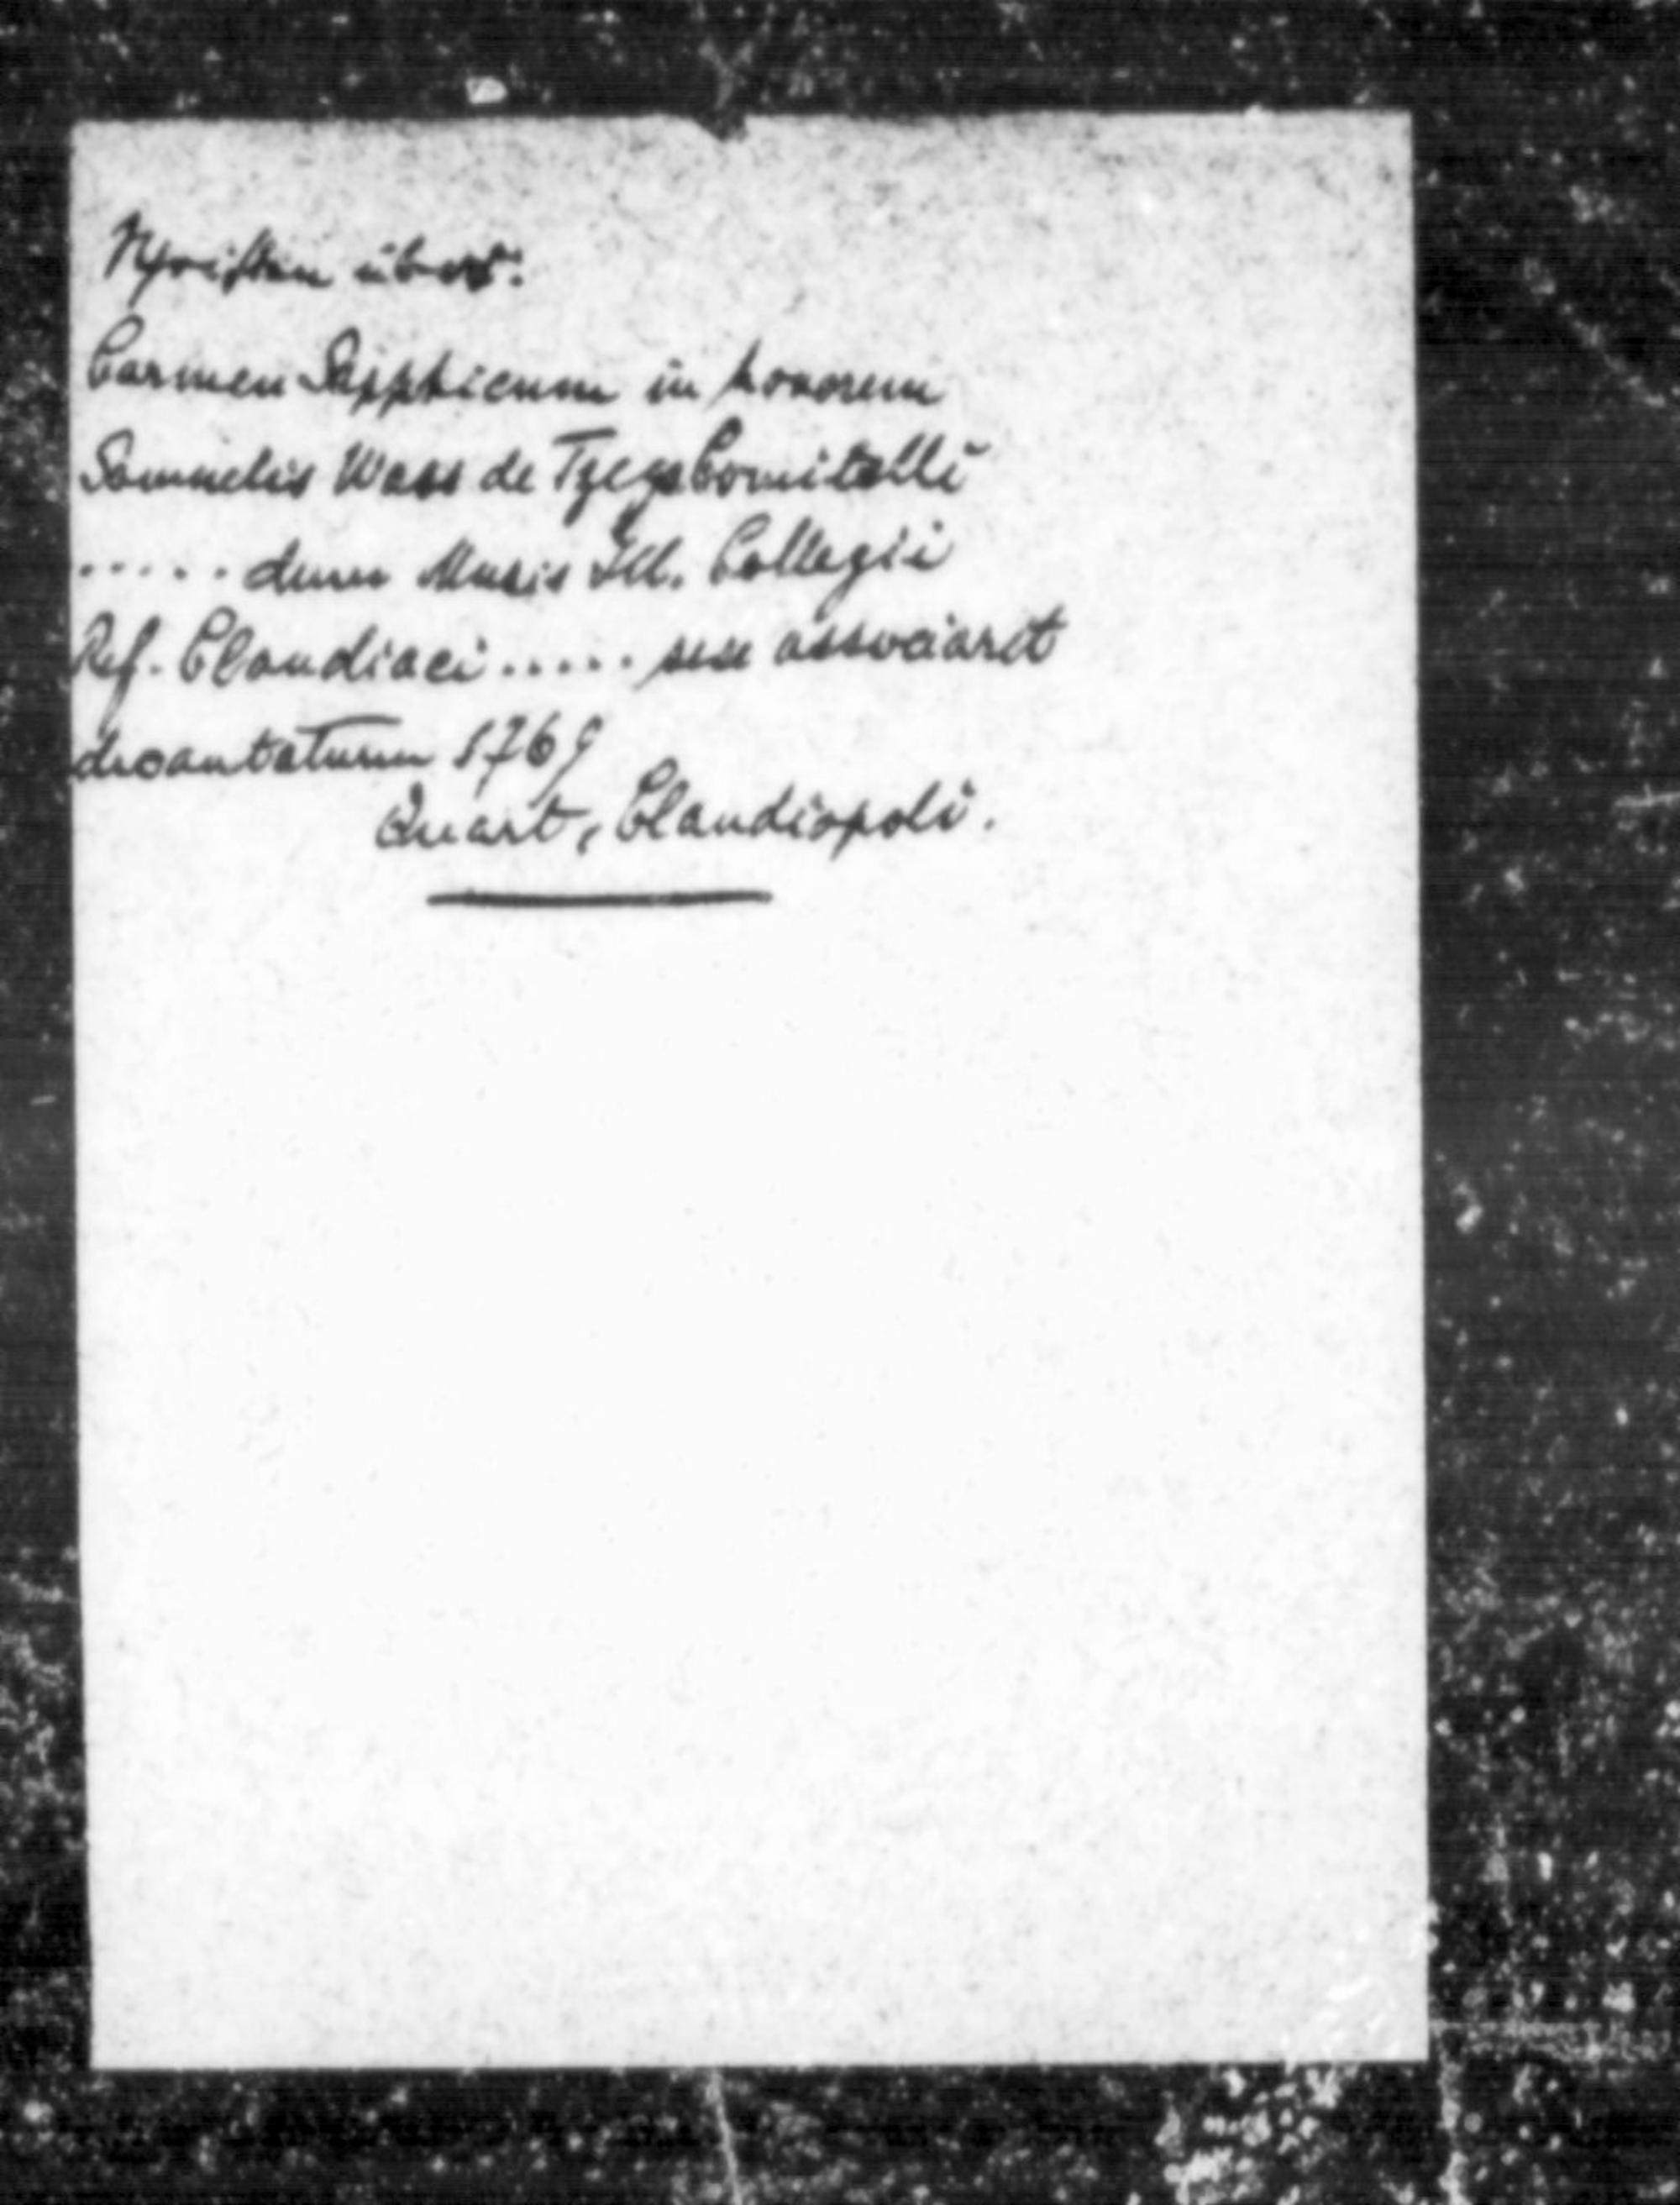 Carmen Sapphicum in honorem
Samuelis Wass de Tzege Comitelli
..... dum Musis Ill. Collegii
Ref. Claudiaci ..... sese associaret
decantatum 1769
Quart, Claudiopoli.